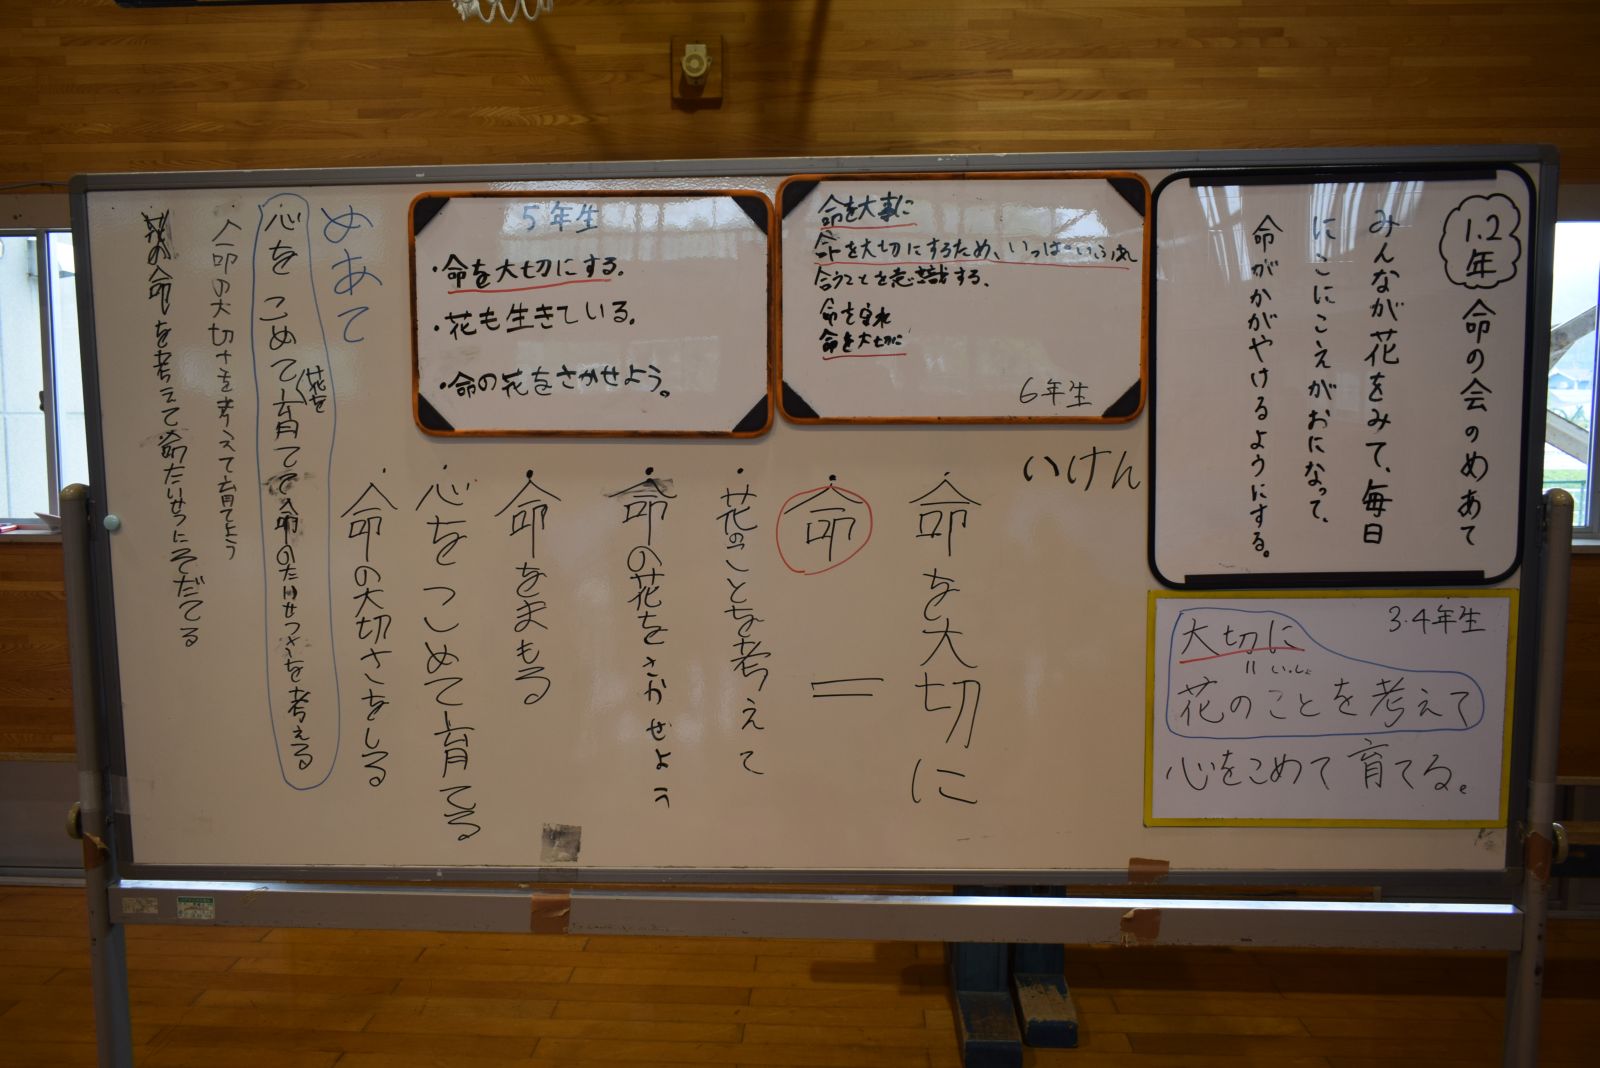 1.2年
命の会のめあて
みんなが花をみて、毎日
にこにこえがおになって、
命がかがやけるようにする。
3.4年生
大切に
〃いっしょ
花のことを考えて
心をこめて育てる。
命を大事に
命を大切にするため、いっぱいふれ
合うことを意識する。
命を
命を大切に
6年生
5年生
・命を大切にする。
・花も生きている。
・命の花をさかせよう。
いけん
・命を大切に
・命=
・花のことを考えて
・命の花をさかせよう
・命をまもる
・心をこめて育てる
・命の大切さをしる
めあて
心をこめて花を育てて命のたいせつさを考える
命の大切さを考えて育てよう
の命を考えて命たいせつにそだてる